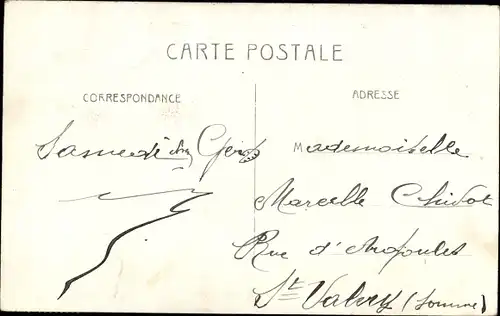 CARTE POSTALE
CORRESPONDANCE
ADRESSE
Samedi
Mademoiselle
Marcelle Chidot
Rue d'
St Valery (Somme)